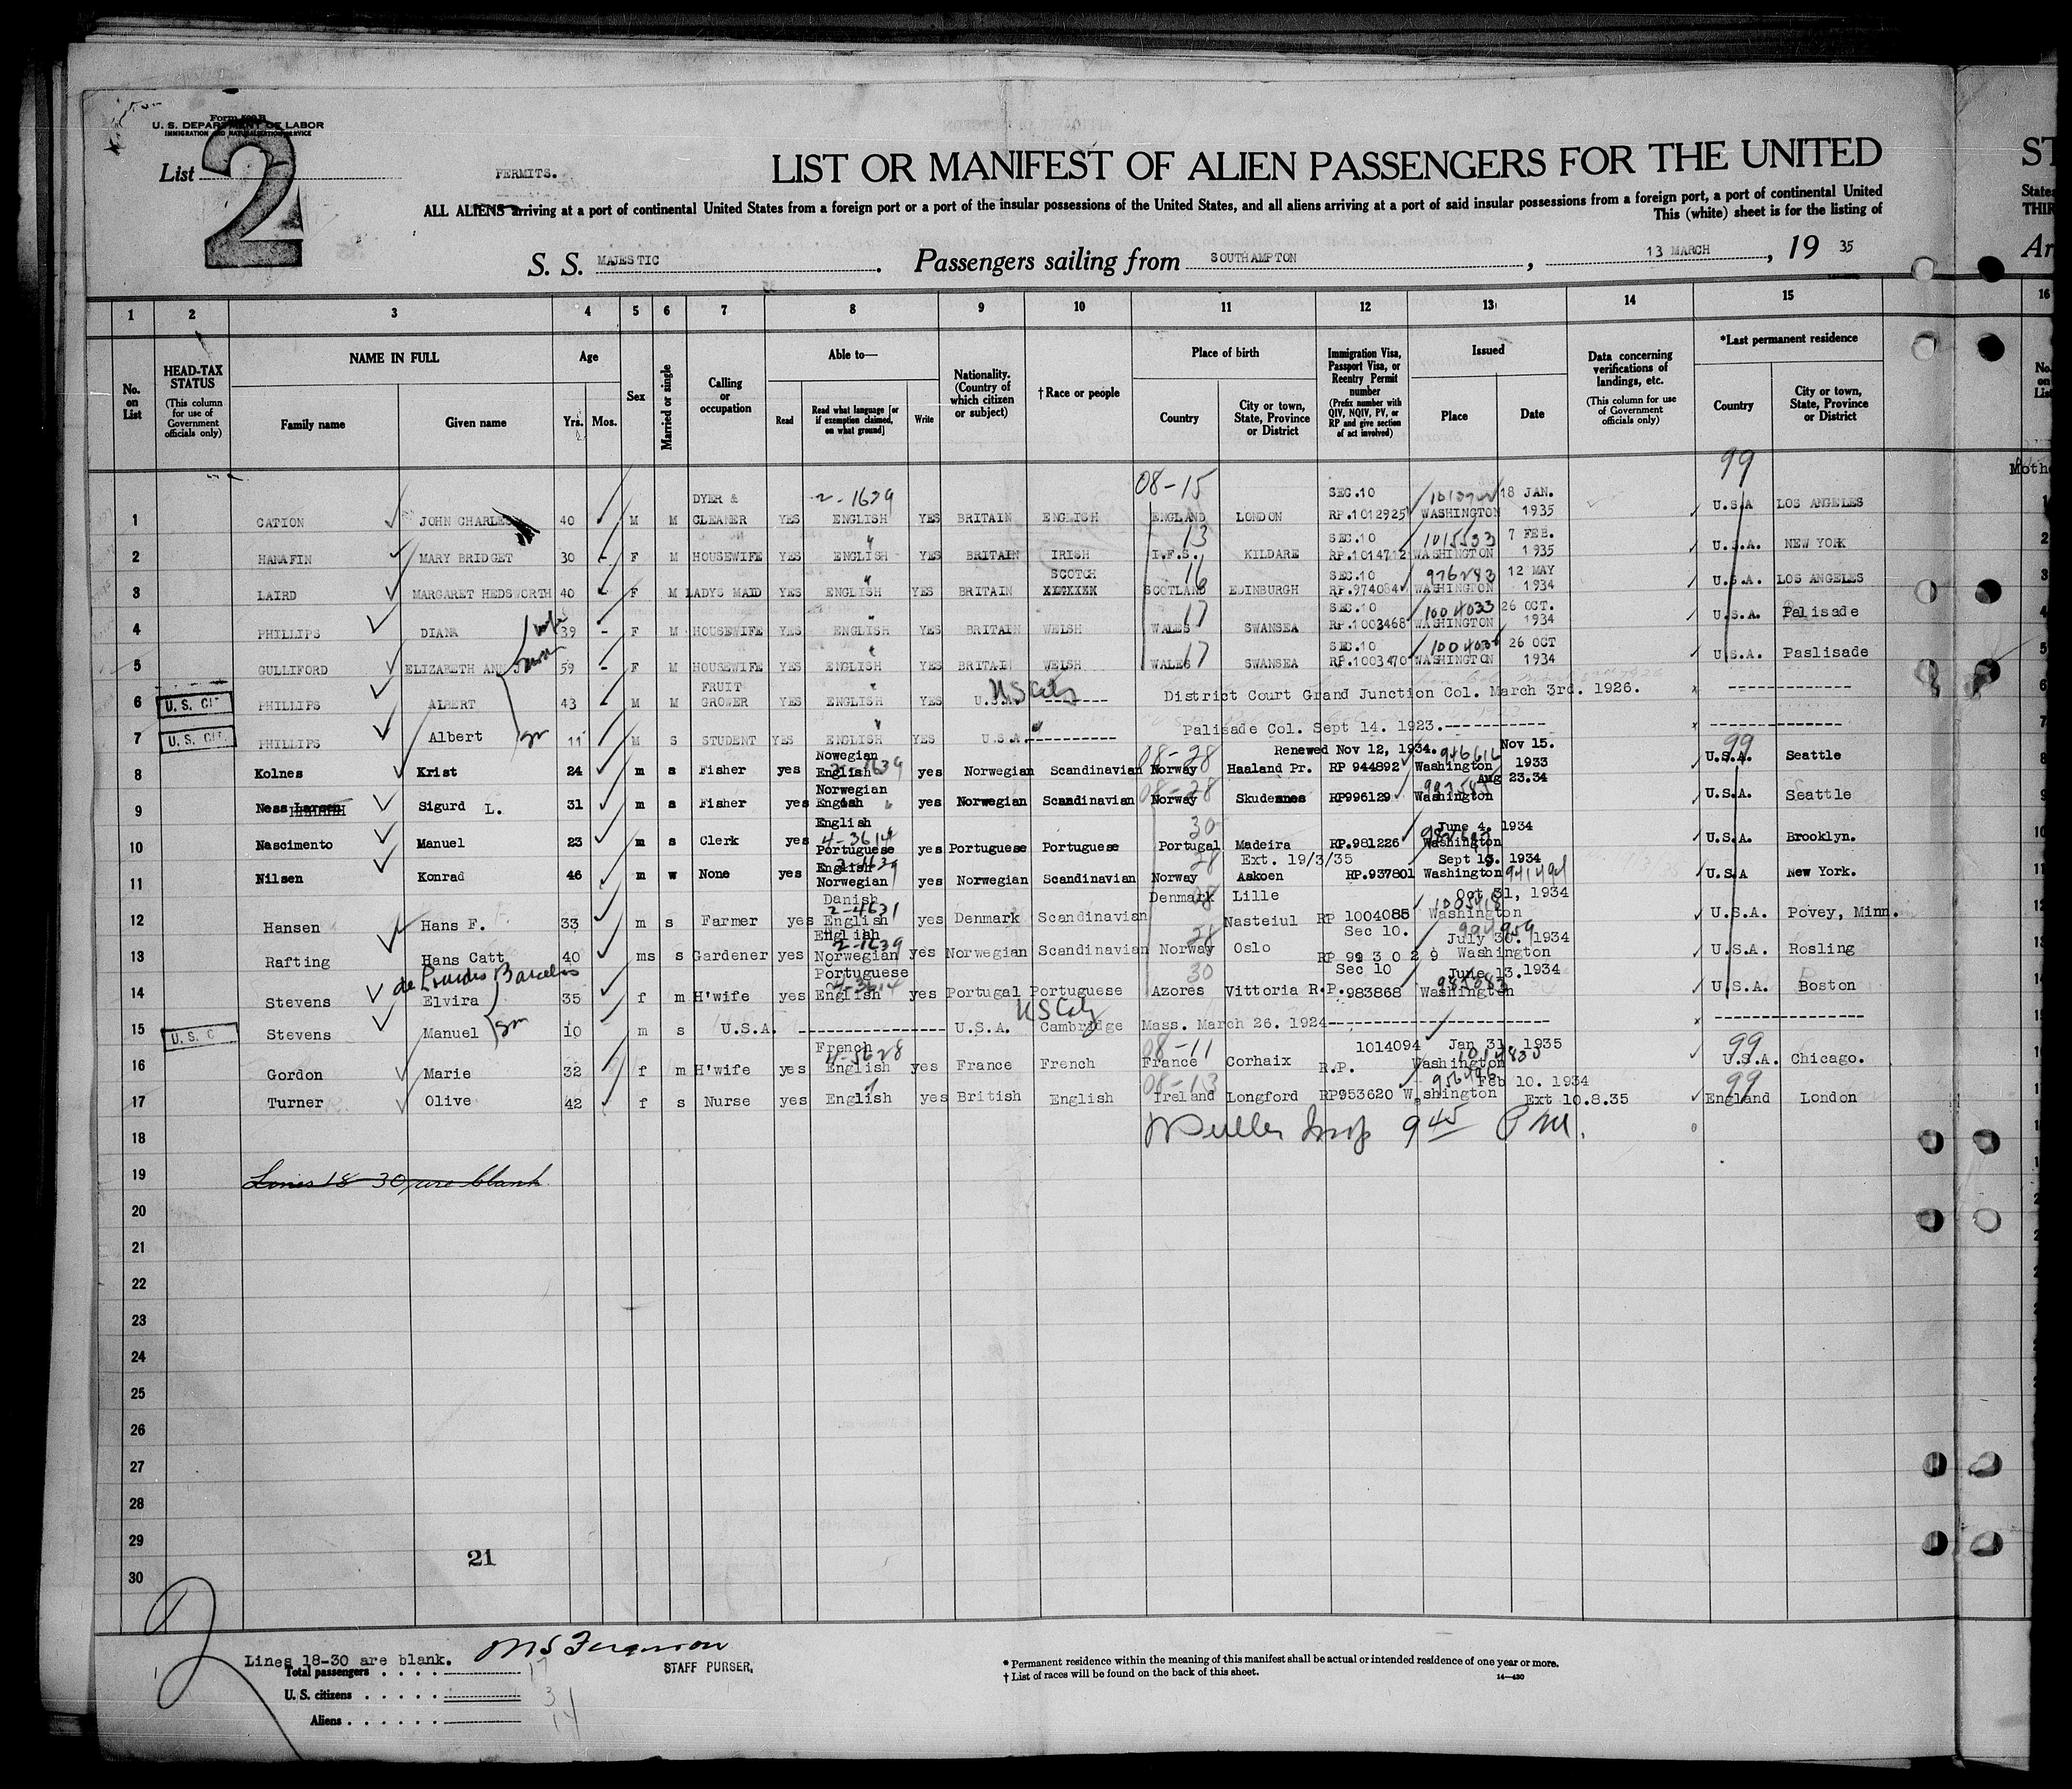 Form 500 B
U. S. DEPARTMENT OF LABOR
IMMIGRATION AND NATURALIZATION SERVICE
List 2
PERMITS.
LIST OR MANIFEST OF ALIEN PASSENGERS FOR THE UNITED
ALL ALIENS arriving at a port of continental United States from a foreign port or a port of the insular possessions of the United States, and all aliens arriving at a port of said insular possessions from a foreign port, a port of continental United
This (white) sheet is for the listing of
S. S. MAJESTIC . Passengers sailing from SOUTHAMPTON , 13 MARCH , 19 35
1 2 3 4 5 6 7 8 9 10 11 12 13 14 15
No. on List
HEAD-TAX STATUS (This column for use of Government officials only)
NAME IN FULL
Family name Given name
Age
Yrs. Mos.
Sex
Married or single
Calling or occupation
Able to—
Read
Read what language [or if exemption claimed, on what ground]
Write
Nationality. (Country of which citizen or subject)
† Race or people
Place of birth
Country
City or town, State, Province or District
Immigration Visa, Passport Visa, or Reentry Permit number (Prefix number with QIV, NQIV, PV, or RP and give section of act involved)
Issued
Place Date
Data concerning verifications of landings, etc. (This column for use of Government officials only)
*Last permanent residence
Country
City or town, State, Province or District
99
08-15
DYER & 2-1639 SEC.10 18 JAN.
1 CATION JOHN CHARLES 40 M M CLEANER YES ENGLISH YES BRITAIN ENGLISH ENGLAND LONDON RP.1012925 WASHINGTON 1935 U.S.A LOS ANGELES
13 SEC.10 1015533 7 FEB.
2 HANAFIN MARY BRIDGET 30 - F M HOUSEWIFE YES ENGLISH YES BRITAIN IRISH I.F.S. KILDARE RP.1014712 WASHINGTON 1935 U.S.A. NEW YORK
SCOTCH 16 SEC.10 976283 12 MAY
3 LAIRD MARGARET HEDSWORTH 40 - F M LADYS MAID YES ENGLISH YES BRITAIN SCOTLAND EDINBURGH RP.974084 WASHINGTON 1934 U.S.A. LOS ANGELES
wife 17 SEC.10 1004033 26 OCT.
4 PHILLIPS DIANA 39 - F M HOUSEWIFE YES ENGLISH YES BRITAIN WELSH WALES SWANSEA RP.1003468 WASHINGTON 1934 U.S.A. Palisade
17 SEC.10 26 OCT
5 GULLIFORD ELIZABETH ANN 59 - F M HOUSEWIFE YES ENGLISH YES BRITAIN WELSH WALES SWANSEA RP.1003470 WASHINGTON 1934 U.S.A. Paslisade
FRUIT US Citz
6 U.S. CIT PHILLIPS ALBERT 43 M M GROWER YES ENGLISH YES U.S.A. -------- District Court Grand Junction Col. March 3rd. 1926. --------------
7 U.S. CIT. PHILLIPS Albert sn 11 M S STUDENT YES ENGLISH YES U.S.A ---------- Palisade Col. Sept 14. 1923.----------- --------------
Nowegian 08-28 Renewed Nov 12, 1934. 946616 Nov 15. 99
8 Kolnes Krist 24 m s Fisher yes English yes Norwegian Scandinavian Norway Haaland Pr. RP 944892 Washington 1933 U.S.A. Seattle
Norwegian 08-28 Aug 23.34
9 Ness Larsen Sigurd L. 31 m s Fisher yes English yes Norwegian Scandinavian Norway Skudesnes RP996129 Washington U.S.A. Seattle
English 4-3614 30 June 4. 1934
10 Nascimento Manuel 23 m s Clerk yes Portuguese yes Portuguese Portuguese Portugal Madeira RP.981226 Washington U.S.A. Brooklyn.
English 28 Ext. 19/3/35 Sept 13. 1934
11 Nilsen Konrad 46 m w None yes Norwegian yes Norwegian Scandinavian Norway Askoen RP.937801 Washington 941494 U.S.A New York.
Danish 2-4631 Denmark 08 Lille Oct 31, 1934
12 Hansen Hans F. 33 m s Farmer yes English yes Denmark Scandinavian Nasteiul RP 1004085 Washington U.S.A. Povey, Minn.
English 2-1639 28 Sec 10. July 30. 1934
13 Rafting Hans Catt 40 ms s Gardener yes Norwegian yes Norwegian Scandinavian Norway Oslo RP 993029 Washington U.S.A. Rosling
de Lourdes Barcelos Portuguese 30 Sec 10 June 13.1934
14 Stevens Elvira 35 f m H'wife yes English yes Portugal Portuguese Azores Vittoria R.P.983868 Washington U.S.A. Boston
US Citz
15 U.S. C Stevens Manuel sn 10 m s U.S.A. ----------------- U.S.A. Cambridge Mass. March 26. 1924-------------------------- --------------
French 4-5628 08-11 1014094 Jan 31, 1935 99
16 Gordon Marie 32 f m H'wife yes English yes France French France Corhaix R.P. Washington U.S.A. Chicago.
08-13 956496 Feb 10. 1934 99
17 Turner Olive 42 f s Nurse yes English yes British English Ireland Longford RP953620 Washington Ext 10.8.35 England London
18 Insp 9 45 P M.
19 Lines 18-30 are blank
20
21
22
23
24
25
26
27
28
29
30
21
Lines 18-30 are blank. M S Ferguson
STAFF PURSER.
Total passengers . . . . 17
U. S. citizens . . . . . 3
Aliens . . . . . . 14
* Permanent residence within the meaning of this manifest shall be actual or intended residence of one year or more.
† List of races will be found on the back of this sheet. 14—430